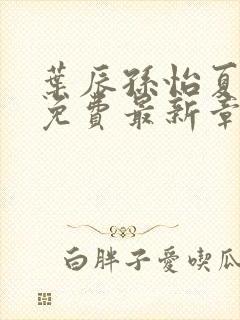 葉辰孫怡夏
免費最新章
白胖子愛喫瓜